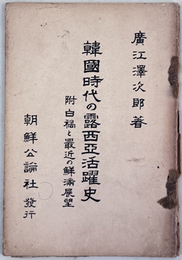 廣江澤次郎著
韓國時代の露西亞活躍史
附 白禍と最近の鮮滿展望
朝鮮公論社 發行